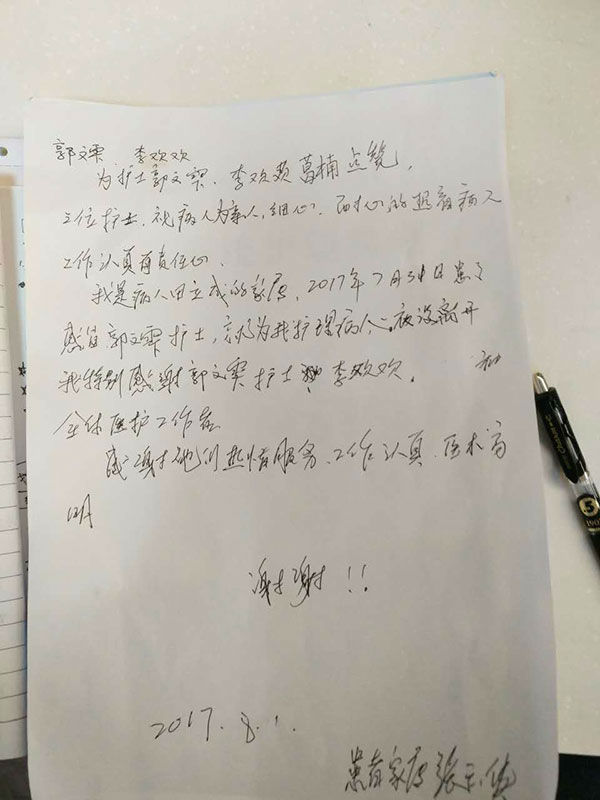 郭文霖、李欢欢
为护士郭文霖、李欢欢、葛楠点赞,
三位护士,视病人为亲人,细心、耐心的照顾病人
工作认真有责任心、
我是病人田立成的家属,2017年7月31日患了
感冒郭文霖护士,为我护理病人一夜没离开
我特别感谢郭文霖护士 李欢欢。 和
全体医护工作者
感谢他们热情服务、工作认真、医术高
明
谢谢!!
2017.8.1.
患者家属张
5